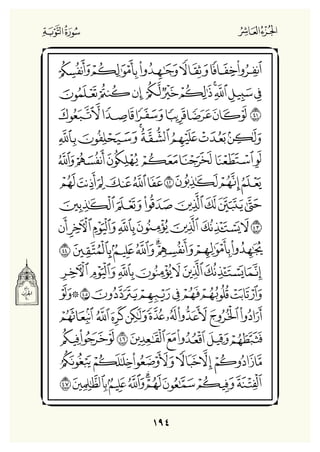 الجُزْءُ العَاشِرُ
سُورَةُ التَّوْبَةِ
ٱنفِرُوا۟ خِفَافًا وَثِقَالًا وَجَٰهِدُوا۟ بِأَمْوَٰلِكُمْ وَأَنفُسِكُمْ
فِى سَبِيلِ ٱللَّهِ ۚ ذَٰلِكُمْ خَيْرٌ لَّكُمْ إِن كُنتُمْ تَعْلَمُونَ
٤١ لَوْ كَانَ عَرَضًا قَرِيبًا وَسَفَرًا قَاصِدًا لَّٱتَّبَعُوكَ
وَلَٰكِنۢ بَعُدَتْ عَلَيْهِمُ ٱلشُّقَّةُ ۚ وَسَيَحْلِفُونَ بِٱللَّهِ
لَوِ ٱسْتَطَعْنَا لَخَرَجْنَا مَعَكُمْ يُهْلِكُونَ أَنفُسَهُمْ وَٱللَّهُ
يَعْلَمُ إِنَّهُمْ لَكَٰذِبُونَ ٤٢ عَفَا ٱللَّهُ عَنكَ لِمَ أَذِنتَ لَهُمْ
حَتَّىٰ يَتَبَيَّنَ لَكَ ٱلَّذِينَ صَدَقُوا۟ وَتَعْلَمَ ٱلْكَٰذِبِينَ
٤٣ لَا يَسْتَـْٔذِنُكَ ٱلَّذِينَ يُؤْمِنُونَ بِٱللَّهِ وَٱلْيَوْمِ ٱلْـَٔاخِرِ أَن
يُجَٰهِدُوا۟ بِأَمْوَٰلِهِمْ وَأَنفُسِهِمْ ۗ وَٱللَّهُ عَلِيمٌۢ بِٱلْمُتَّقِينَ ٤٤
إِنَّمَا يَسْتَـْٔذِنُكَ ٱلَّذِينَ لَا يُؤْمِنُونَ بِٱللَّهِ وَٱلْيَوْمِ ٱلْـَٔاخِرِ
وَٱرْتَابَتْ قُلُوبُهُمْ فَهُمْ فِى رَيْبِهِمْ يَتَرَدَّدُونَ ٤٥ ۞ وَلَوْ
أَرَادُوا۟ ٱلْخُرُوجَ لَأَعَدُّوا۟ لَهُۥ عُدَّةً وَلَٰكِن كَرِهَ ٱللَّهُ ٱنۢبِعَاثَهُمْ
فَثَبَّطَهُمْ وَقِيلَ ٱقْعُدُوا۟ مَعَ ٱلْقَٰعِدِينَ ٤٦ لَوْ خَرَجُوا۟ فِيكُم
مَّا زَادُوكُمْ إِلَّا خَبَالًا وَلَأَوْضَعُوا۟ خِلَٰلَكُمْ يَبْغُونَكُمُ
ٱلْفِتْنَةَ وَفِيكُمْ سَمَّٰعُونَ لَهُمْ ۗ وَٱللَّهُ عَلِيمٌۢ بِٱلظَّٰلِمِينَ ٤٧
١٩٤